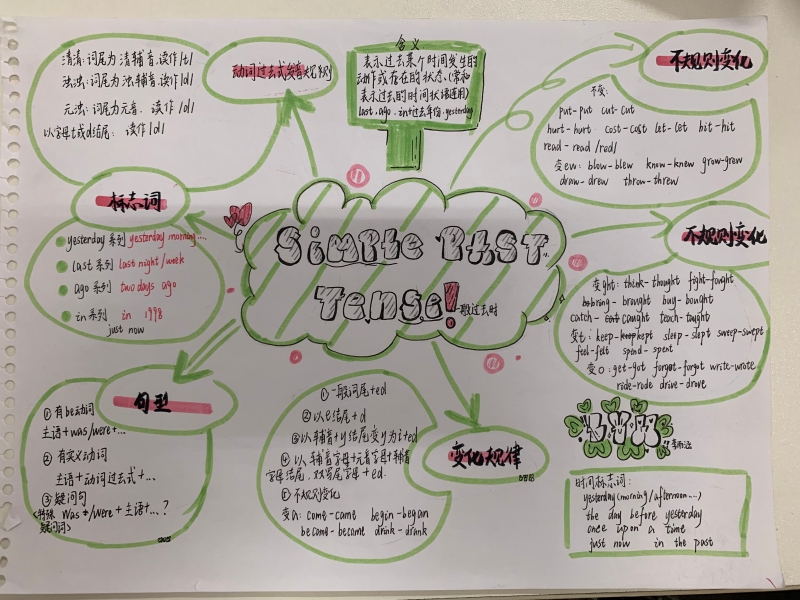 清清:词尾为清辅音,读作/t/
浊浊:词尾为浊辅音读作/d/
元浊:词尾为元音,读作/d/
以字母t或d结尾: 读作/d/
动词过去式发音规则
含义
表示过去某个时间发生的
动作或存在的状态、(常和
表示过去的时间状语连用)
last、ago、in+过去年份、yesterday
不规则变化
不变:
put-put cut-cut
hurt-hurt cost-cost let-let hit-hit
read-read /red/
变ew: blow-blew know-knew grow-grew
draw-drew throw-threw
标志词
yesterday系列 yesterday morning...
last系列 last night/week
ago系列 two days ago
in系列 in 1998
just now
Simple Past
Tense!
一般过去时
不规则变化
变ght: think-thought fight-fought
bring-brought buy-bought
catch-caught teach-taught
变t: keep-kept sleep-slept sweep-swept
feel-felt spend-spent
变o: get-got forget-forgot write-wrote
ride-rode drive-drove
句型
①有be动词
主语+was/were+...
②有实义动词
主语+动词过去式+...
③疑问句
<特殊疑问词> Was/Were+主语+...?
①一般词尾+ed
②以e结尾+d
③以辅音+y结尾变y为i+ed
④以辅音字母+元音字母+辅音
字母结尾,双写尾字母+ed.
⑤不规则变化
变a: come-came begin-began
become-became drink-drank
变化规律
时间标志词:
yesterday(morning/afternoon...)
the day before yesterday
once upon a time
just now in the past